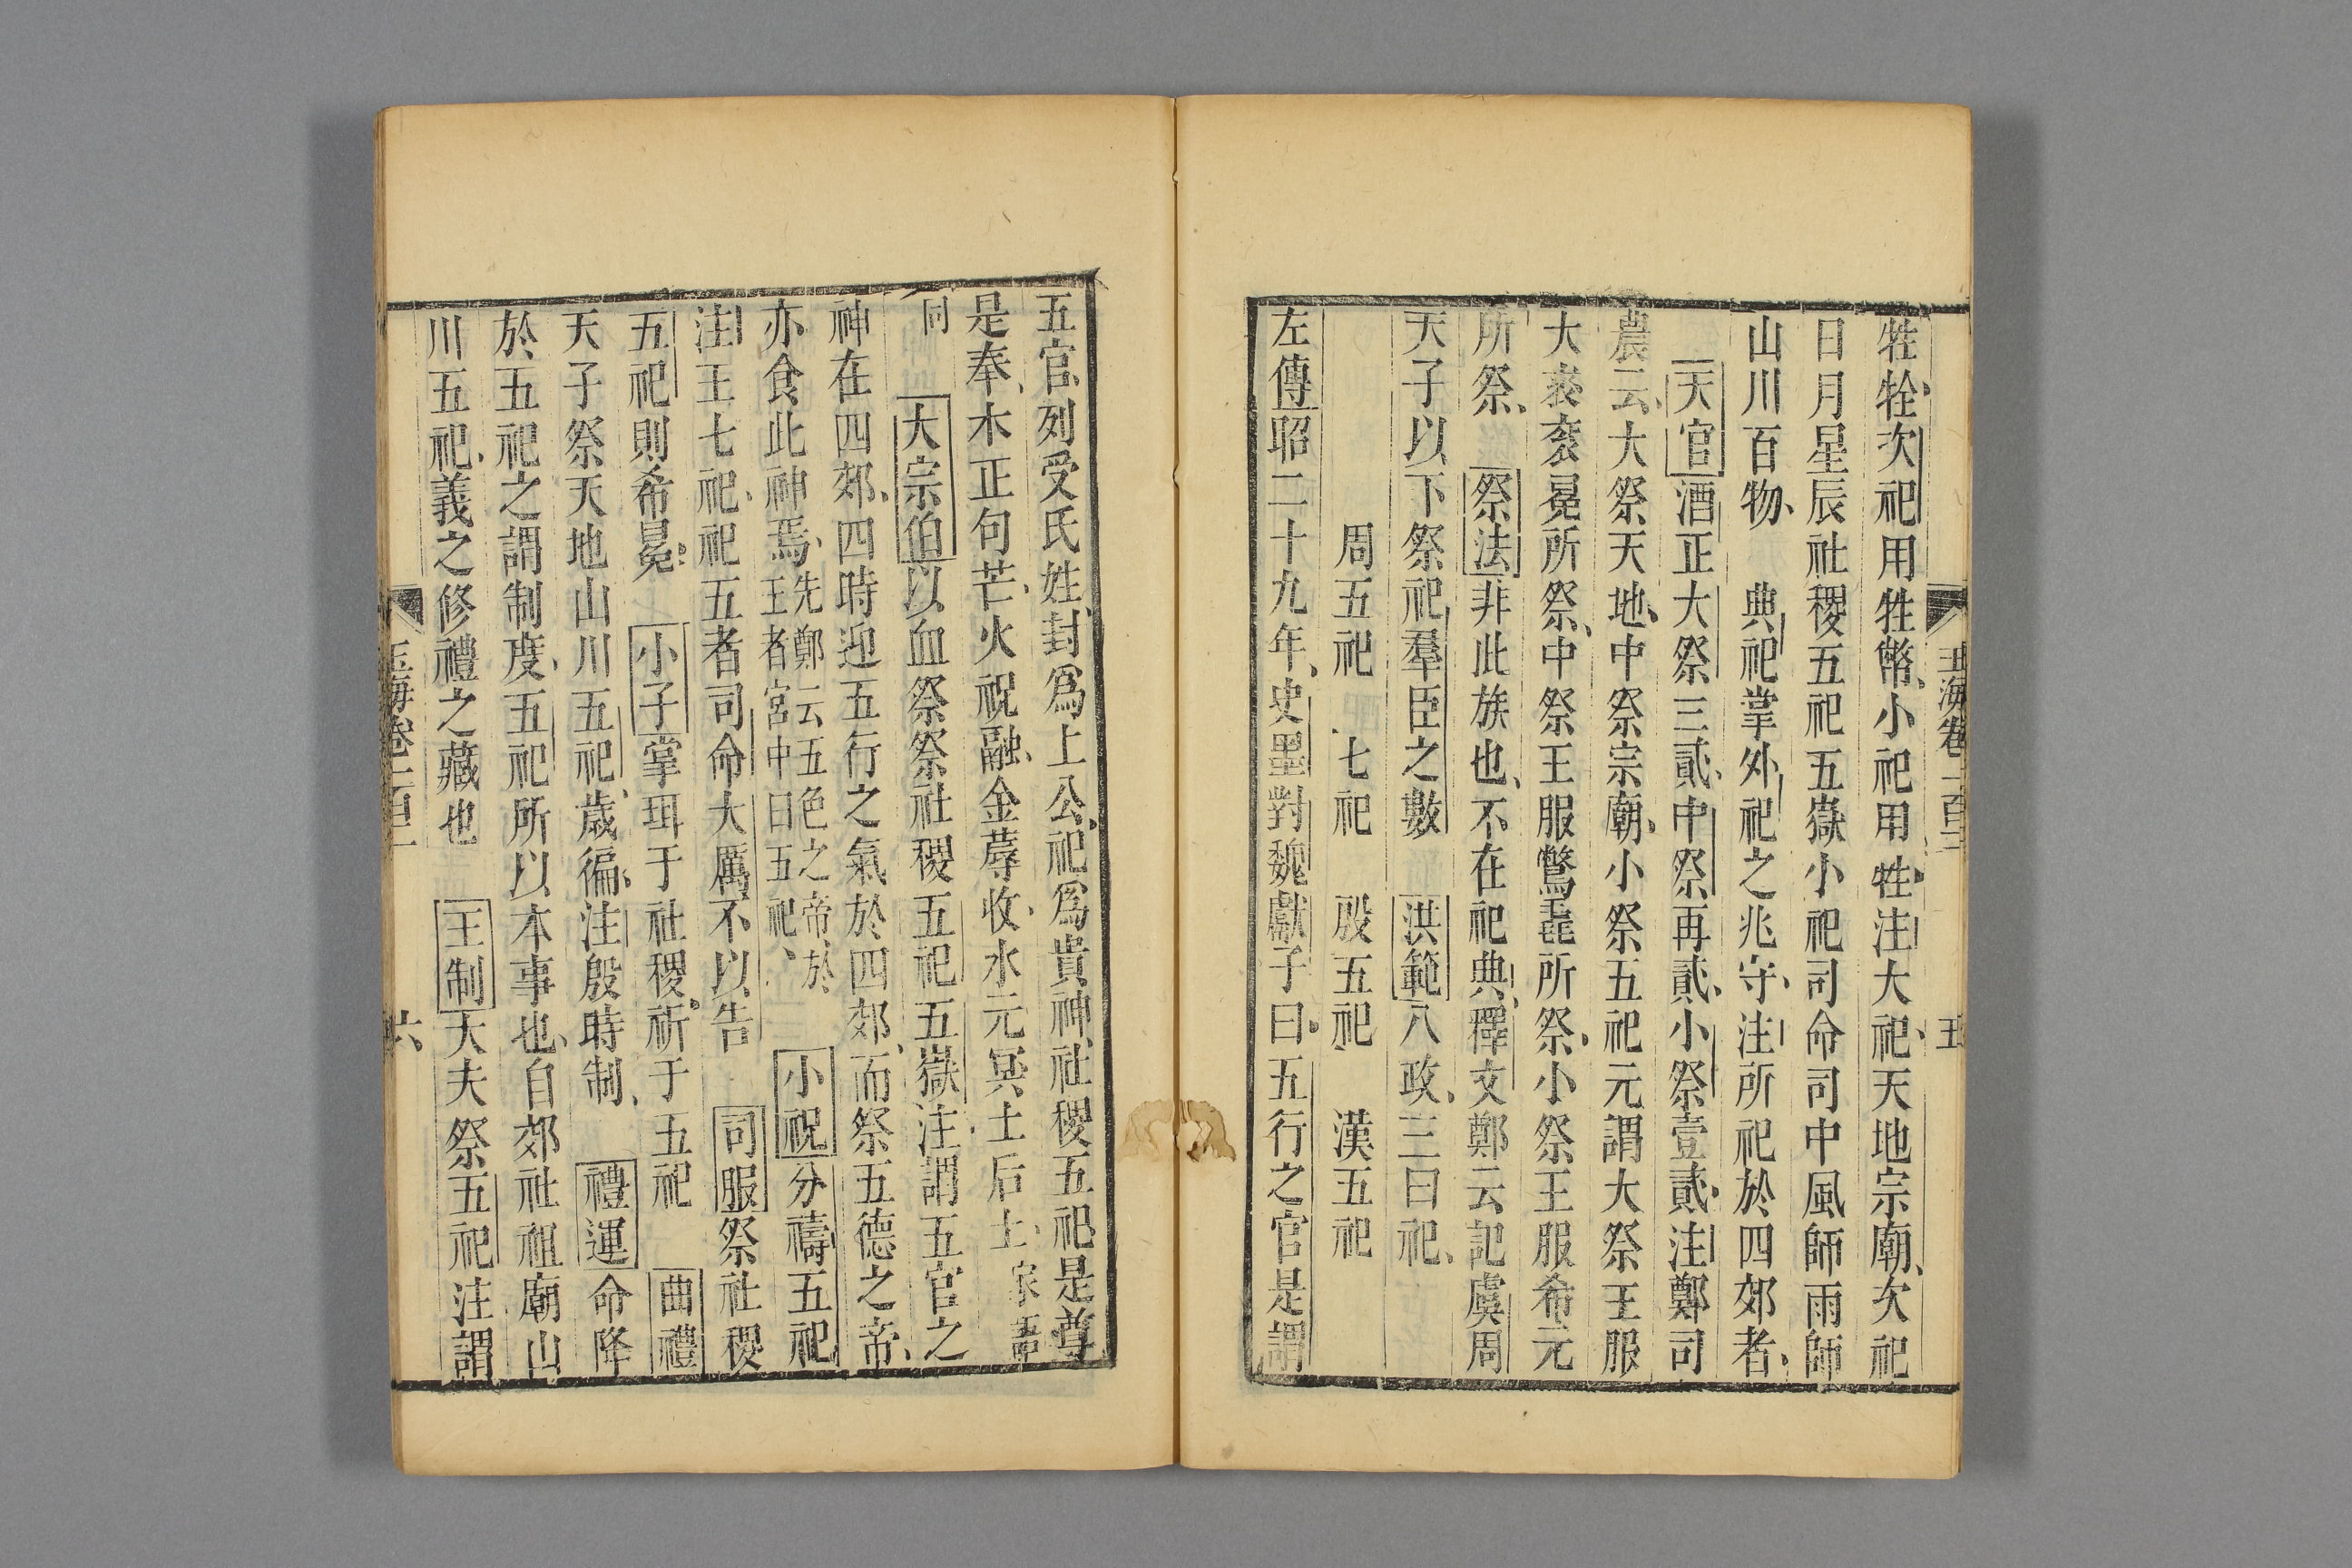 玉海卷一百二
五
牲牷次祀用牲幣小祀用牲注大祀天地宗廟次祀
日月星辰社稷五祀五嶽小祀司命司中風師雨師
山川百物 典祀掌外祀之兆守注所祀於四郊者
天官酒正大祭三貳中祭再貳小祭壹貳注鄭司
農云大祭天地中祭宗廟小祭五祀元謂大祭王服
大裘袞冕所祭中祭王服鷩毳所祭小祭王服希元
所祭 祭法非此族也不在祀典釋文鄭云記虞周
天子以下祭祀羣臣之數 洪範八政三曰祀
周五祀 七祀 殷五祀 漢五祀
左傳昭二十九年史墨對魏獻子曰五行之官是謂
五官列受氏姓封爲上公祀爲貴神社稷五祀是尊
是奉木正句芒火祝融金蓐收水元冥土后土家語
同 大宗伯以血祭祭社稷五祀五嶽注謂五官之
神在四郊四時迎五行之氣於四郊而祭五德之帝
亦食此神焉先鄭云五色之帝於王者宮中曰五祀 小祝分禱五祀
注王七祀祀五者司命大厲不以告 司服祭社稷
五祀則希冕 小子掌珥于社稷祈于五祀 曲禮
天子祭天地山川五祀歲徧注殷時制 禮運命降
於五祀之謂制度五祀所以本事也自郊社祖廟山
川五祀義之修禮之藏也 王制大夫祭五祀注謂
六